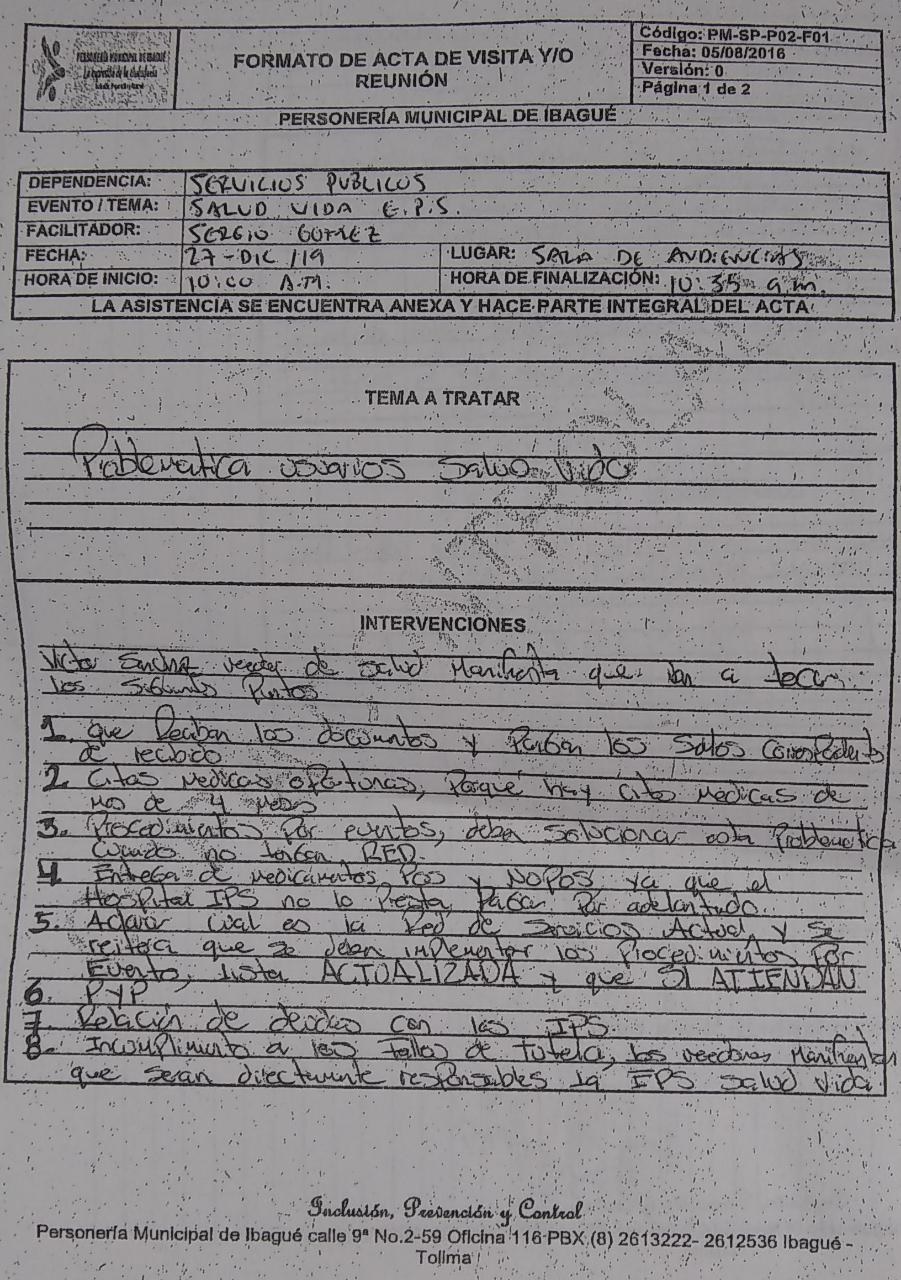 PERSONERÍA MUNICIPAL DE IBAGUÉ
FORMATO DE ACTA DE VISITA Y/O
REUNIÓN
Código: PM-SP-P02-F01
Fecha: 05/08/2016
Versión: 0
Página 1 de 2
PERSONERÍA MUNICIPAL DE IBAGUÉ
DEPENDENCIA: SERVICIOS PUBLICOS
EVENTO / TEMA: SALUD VIDA E.P.S.
FACILITADOR: SERGIO GOMEZ
FECHA: 27-DIC /19 LUGAR: SALA DE AUDIENCIAS
HORA DE INICIO: 10:00 A.M. HORA DE FINALIZACIÓN: 10:35 a.m.
LA ASISTENCIA SE ENCUENTRA ANEXA Y HACE PARTE INTEGRAL DEL ACTA
TEMA A TRATAR
Problematica usuarios Salud Vida
INTERVENCIONES
Victor Sanchez veedor de salud Manifiesta que van a tocar
los Siguientes Puntos
1. que Reciban los documentos y Pongan los Sellos Correspondientes
de recibido
2. Citas Medicas oportunas, Porque hay citas medicas de
mas de 4 meses
3. Procedimientos Por eventos, deben Solucionar esta Problematica
Cuando no tengan RED.
4. Entrega de medicamentos POS y NOPOS, ya que el
Hospital IPS no lo Presta, Pagar Por adelantado.
5. Aclarar Cual es la Red de Servicios Actual, y Se
reitera que se deben implementar los Procedimientos Por
Evento, lista ACTUALIZADA y que SI ATIENDAN
6. PYP
7. Relación de deudas con las IPS
8. Incumplimento a los fallos de tutela, los veedores Manifiestan
que seran directamente responsables la EPS Salud Vida
Inclusión, Prevención y Control
Personería Municipal de Ibagué calle 9ª No.2-59 Oficina 116 PBX (8) 2613222- 2612536 Ibagué -
Tolima